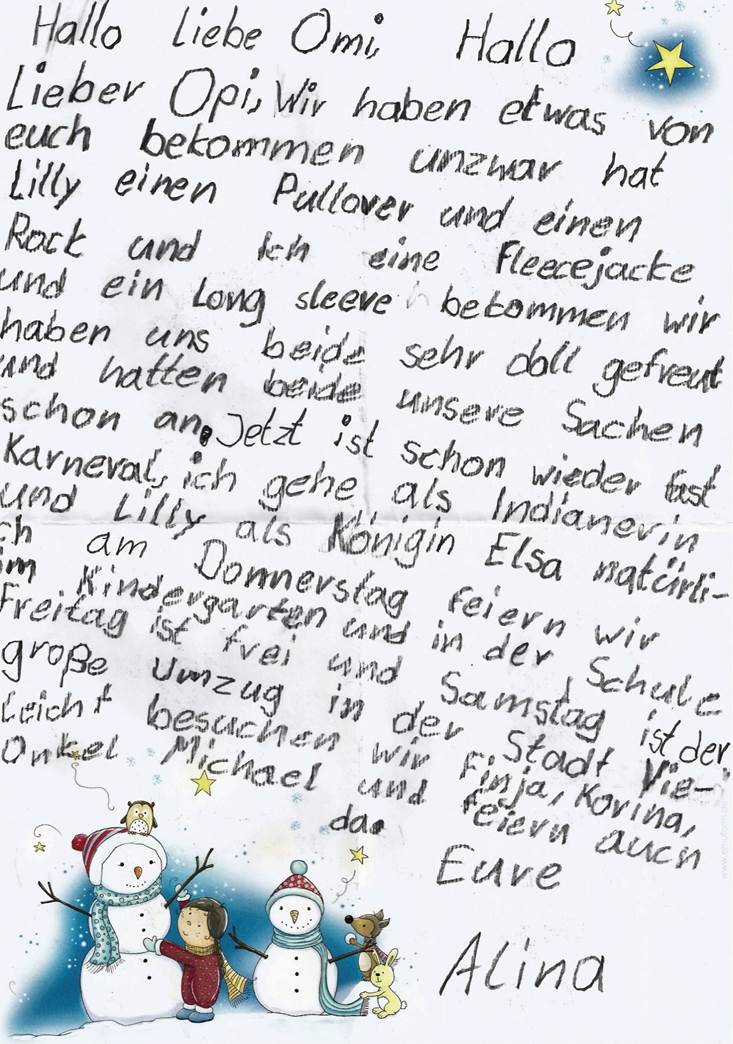 Hallo Liebe Omi, Hallo
Lieber Opi, Wir haben etwas von
euch bekommen umzwar hat
Lilly einen Pullover und einen
Rock und ich eine Fleecejacke
und ein Long sleeve bekommen wir
haben uns beide sehr doll gefreut
und hatten beide unsere Sachen
schon an. Jetzt ist schon wieder fast
Karneval, ich gehe als Indianerin
und Lilly als Königin Elsa natürli-
ch am Donnerstag feiern wir
im Kindergarten und in der Schule
Freitag ist frei und Samstag ist der
große Umzug in der Stadt Vie-
leicht besuchen wir Finja, Korina,
Onkel Michael und feiern auch
da.
Eure
Alina